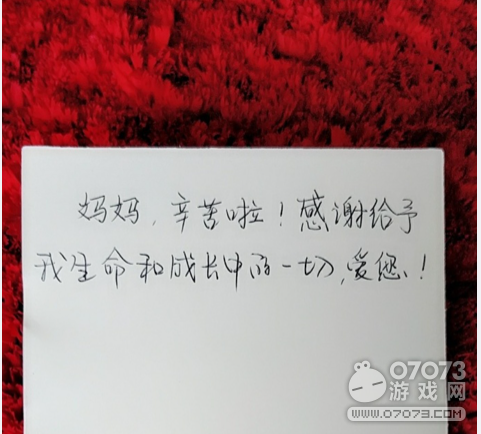 妈妈，辛苦啦！感谢给予
我生命和成长中的一切，爱您！
07073
游戏网
www.07073.com